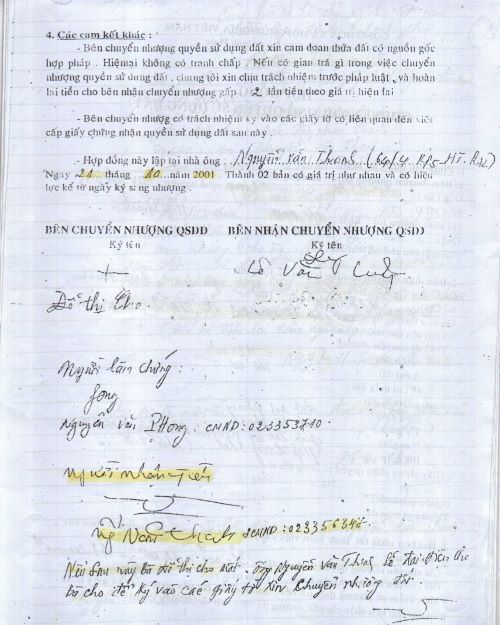 4. Các cam kết khác :
- Bên chuyển nhượng quyền sử dụng đất xin cam đoan thửa đất có nguồn gốc
hợp pháp . Hiện tại không có tranh chấp . Nếu có gian trá gì trong việc chuyển
nhượng quyền sử dụng đất , chúng tôi xin chịu trách nhiệm trước pháp luật , và hoàn
lại tiền cho bên nhận chuyển nhượng gấp : 2 lần tiền theo giá trị hiện tại
- Bên chuyển nhượg có trách nhiệm ký vào các giấy tờ có liên quan đến việc
cấp giấy chứng nhận quyền sử dụng đất sau này .
- Hợp đồng này lập tại nhà ông : Nguyễn Văn Thành
Ngày 21 tháng 10 .năm 2001 Thành 02 bản có giá trị như nhau và có hiệu
lực kể từ ngày ký sang nhượng .
BÊN CHUYỂN NHƯỢNG QSDĐ BÊN NHẬN CHUYỂN NHƯỢNG QSDĐ
Ký tên Ký tên
Lê Văn
Đỗ thị Cho
Người làm chứng :
Nguyễn văn Phong . CMND : 023353710
Người nhận tiền
Ng Văn Thành CMND : 023356348
Nếu Sau này bà Đỗ thị cho mất . ông Nguyễn văn Thành sẽ đại diện cho
bà cho để ký vào các giấy tờ xin chuyển nhượng đất .